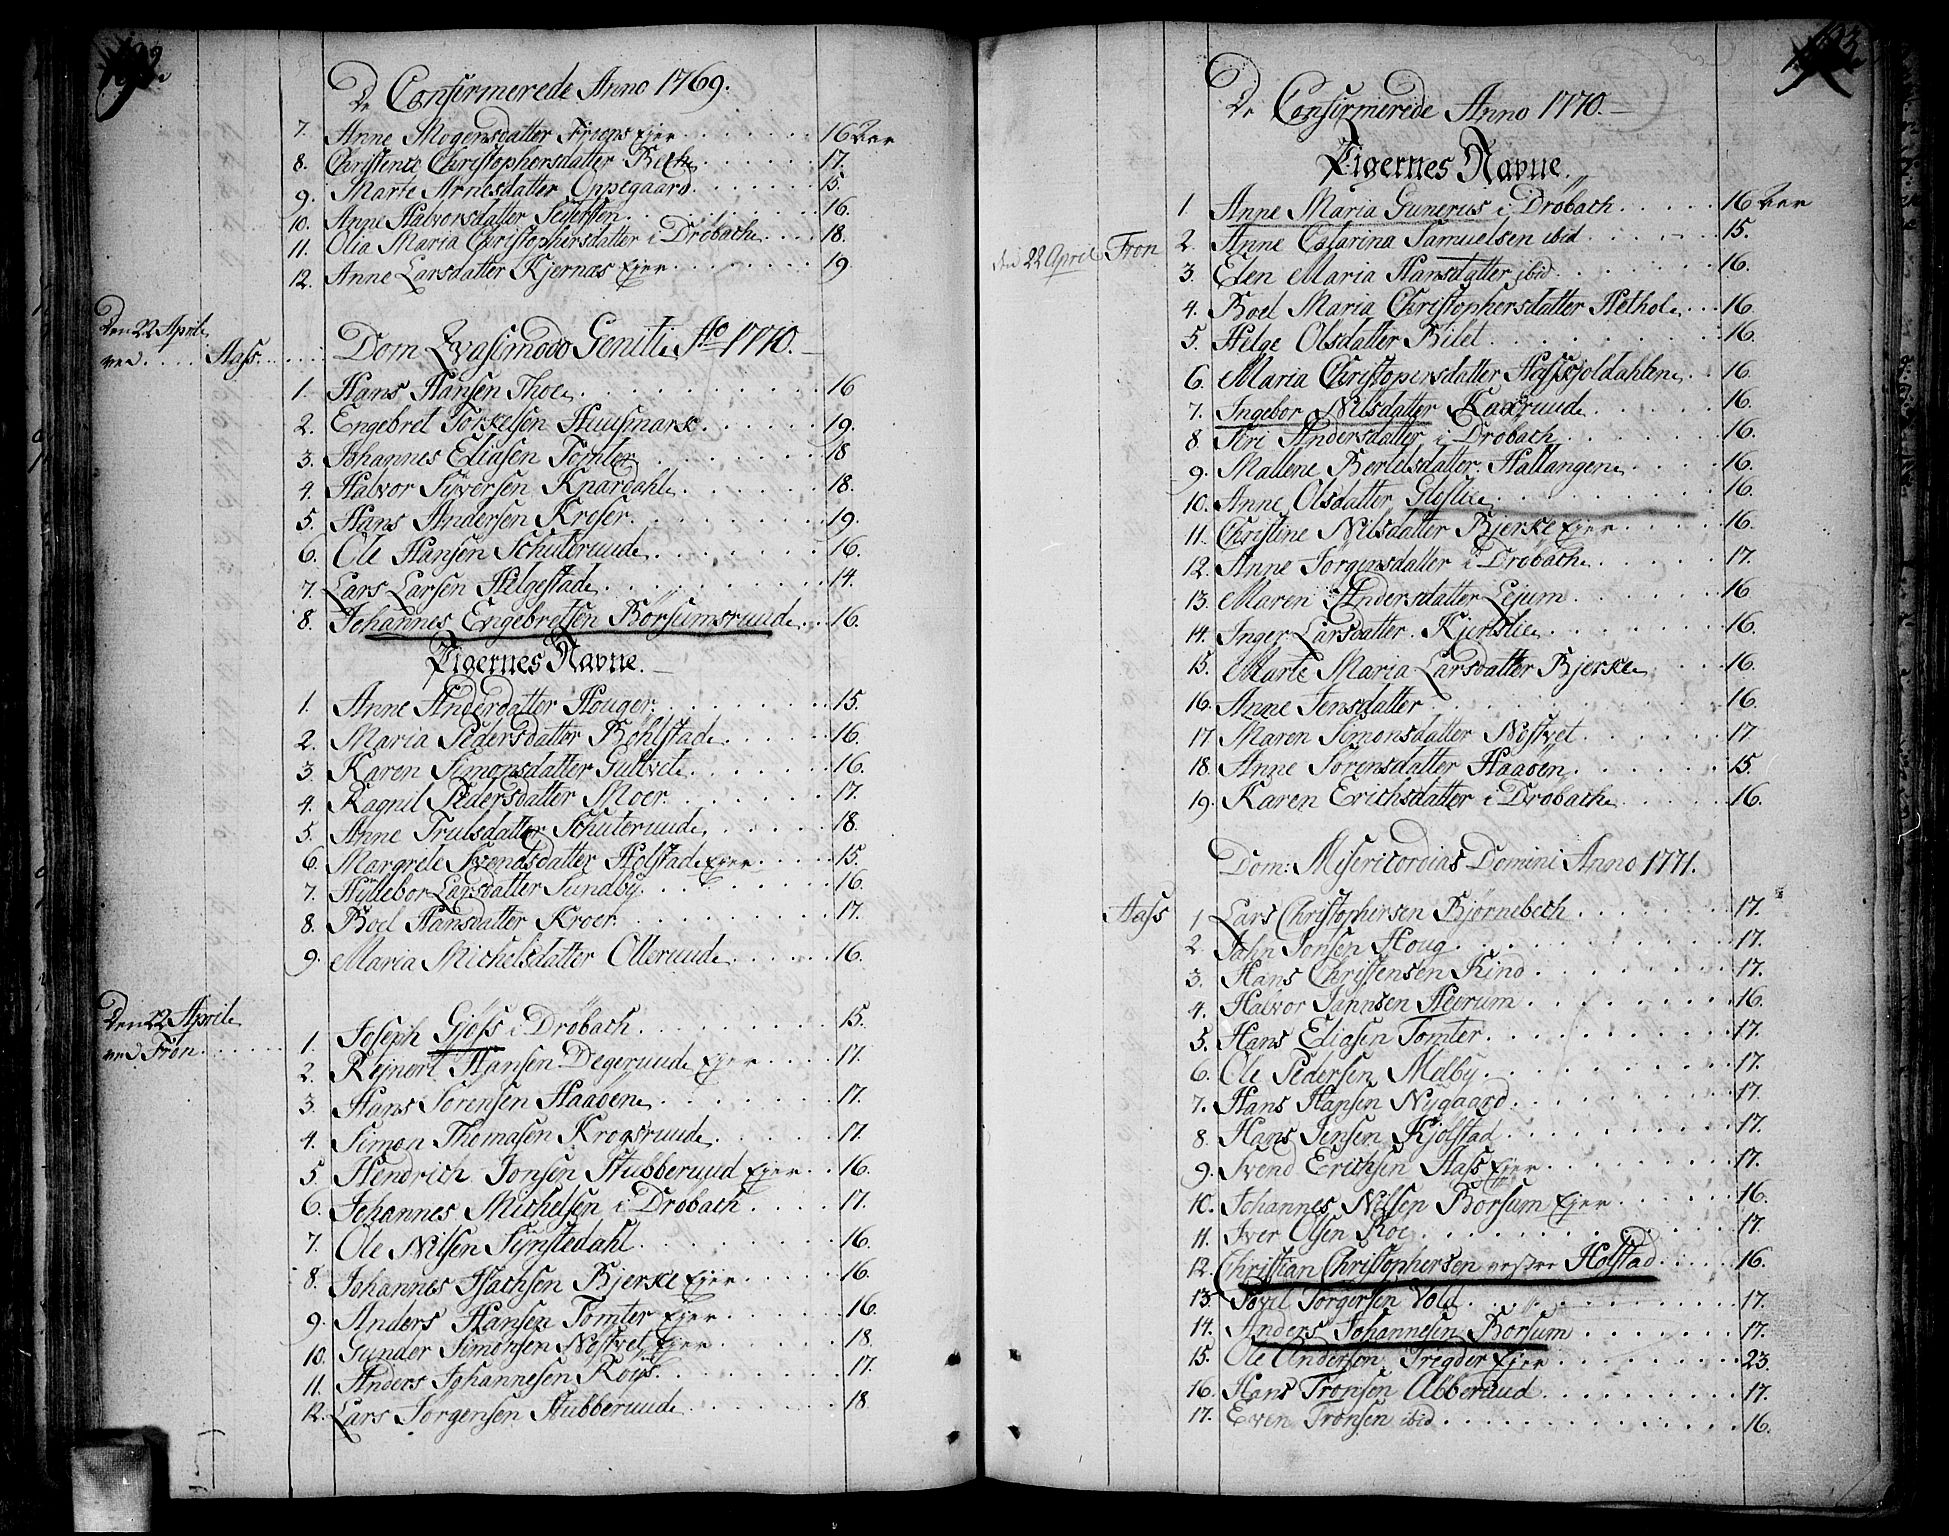 De Confirmerede Anno 1769.
7. Anne Mogensdatter Froens Ejer 16 Aar
8. Christense Christophersdatter Bech 17.
9. Marte Arnesdatter Oppegaard 15.
10. Anne Halvorsdatter Seiersten 16.
11. Olia Maria Christophersdatter i Drøbach 18.
12. Anne Larsdatter Kjernas Ejer 19
Den 22 April
ved Aass Dom Qvasimodo Geniti Ao 1770.
1. Hans Hansen Thoe 16
2. Engebret Torkelsen Huusmark 19.
3. Johannes Eliasen Tomter 18
4. Halvor Syversen Knardahl 18.
5. Hans Andersen Kroser 19.
6. Ole Hansen Schuterunde 16.
7. Lars Larsen Helgestad 14.
8. Johannes Engebretsen Borsumsruud 16.
Pigernes Navne.
1. Anne Anderdatter Houger 15.
2. Maria Pedersdatter Bøhlstad 16.
3. Karen Simonsdatter Gultvet 16.
4. Ragnil Pedersdatter Moer 17.
5. Anne Trulsdatter Schuterunde 18.
6. Margrete Svendsdatter Holstad Ejer 15.
7. Hyllebor Larsdatter Sundby 16.
8. Boel Hansdatter Kroer 17.
9. Maria Michelsdatter Ollerunde 16.
Den 22 April
ved Fron
1. Joseph Gjøss i Drøbach 15.
2. Rejnert Hansen Degerunde Ejer 17.
3. Hans Sørensen Haaven 17.
4. Simon Thomasen Krogsruude 17.
5. Hendrich Jonsen Stubberuud Ejer 16.
6. Johannes Michelsen i Drøbach 17.
7. Ole Nilsen Synstedahl 16.
8. Johannes Isachsen Bjerke Ejer 16.
9. Anders Hansen Tomter Ejer 16.
10. Gunder Simonsen Nøstvet Ejer 18.
11. Anders Johannesen Røiis 17.
12. Lars Jørgensen Stubberuude 18.
De Confirmerede Anno 1770.
Pigernes Navne.
1. Anne Maria Gunerus i Drøbach 16 Aar
den 22 April Fron 2. Anne Catarina Samuelsen ibid 15.
3. Elen Maria Hansdatter ibid 16.
4. Boel Maria Christophersdatter Hethol 16.
5. Helge Olsdatter Bilet 16.
6. Maria Christopersdatter Hasskjoldahlen 16.
7. Ingebor Nilsdatter Kaxruud 16.
8. Siri Andersdatter i Drøbach 16.
9. Mallene Bertelsdatter Hallangen 16.
10. Anne Olsdatter Glyslie 16.
11. Christine Nilsdatter Bjerke Ejer 16.
12. Anne Jørgensdatter i Drøbach 17.
13. Maren Andersdatter Lejum 16
14. Inger Larsdatter Kjerislie 16.
15. Marte Maria Larsdatter Bjerke 16.
16. Anne Jensdatter 16.
17 Maren Simonsdatter Nøstvet 17
18. Anne Sørensdatter Haaven 15.
19. Karen Erichsdatter i Drøbach 16.
Dom: Misericordias Domini Anno 1771.
Aass 1 Lars Christophersen Bjørnebech 17.
2. John Jonsen Houg 17.
3. Hans Christensen Kind 17.
4. Halvor Jannsen Heerum 16.
5. Hans Eliasen Tomter 17.
6. Ole Pedersen Melby 17.
7. Hans Hansen Nygaard 17.
8. Hans Jensen Kjølstad 17.
9. Svend Erichsen Aass Ejer 17.
10. Johannes Nilsen Borsum Ejer 16.
11. Iver Olsen Roe 17.
12. Christian Christophersen vestre Holstad 16.
13. Povel Jørgersen Vold 17.
14. Anders Johannesen Borsum 17.
15. Ole Andersen Tregder Ejer 23.
16. Hans Tronsen Abberuud 17.
17. Even Tronsen ibid 16.